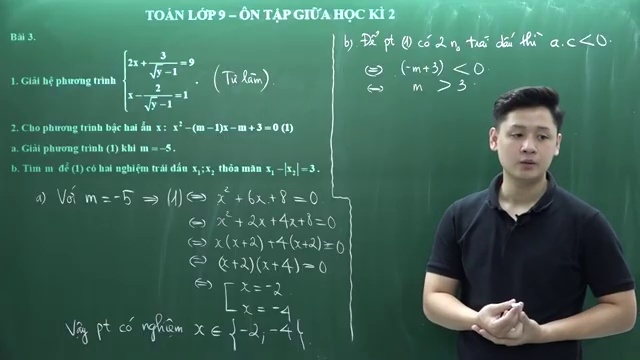 TOÁN LỚP 9 – ÔN TẬP GIỮA HỌC KÌ 2
Bài 3.
1. Giải hệ phương trình { 2x + 3/(√y − 1) = 9
x − 2/(√y − 1) = 1 . (Tự làm).
2. Cho phương trình bậc hai ẩn x : x² − (m − 1)x − m + 3 = 0 (1)
a. Giải phương trình (1) khi m = −5 .
b. Tìm m để (1) có hai nghiệm trái dấu x₁; x₂ thỏa mãn x₁ − |x₂| = 3 .
a) Với m = −5 ⇒ (1) ⇔ x² + 6x + 8 = 0
⇔ x² + 2x + 4x + 8 = 0
⇔ x(x+2) + 4(x+2) = 0
⇔ (x+2)(x+4) = 0
⇔ [ x = −2
x = −4
Vậy pt có nghiệm x ∈ {−2, −4}.
b) Để pt (1) có 2 n₀ trái dấu thì a.c < 0.
⇔ (−m+3) < 0
⇔ m > 3.